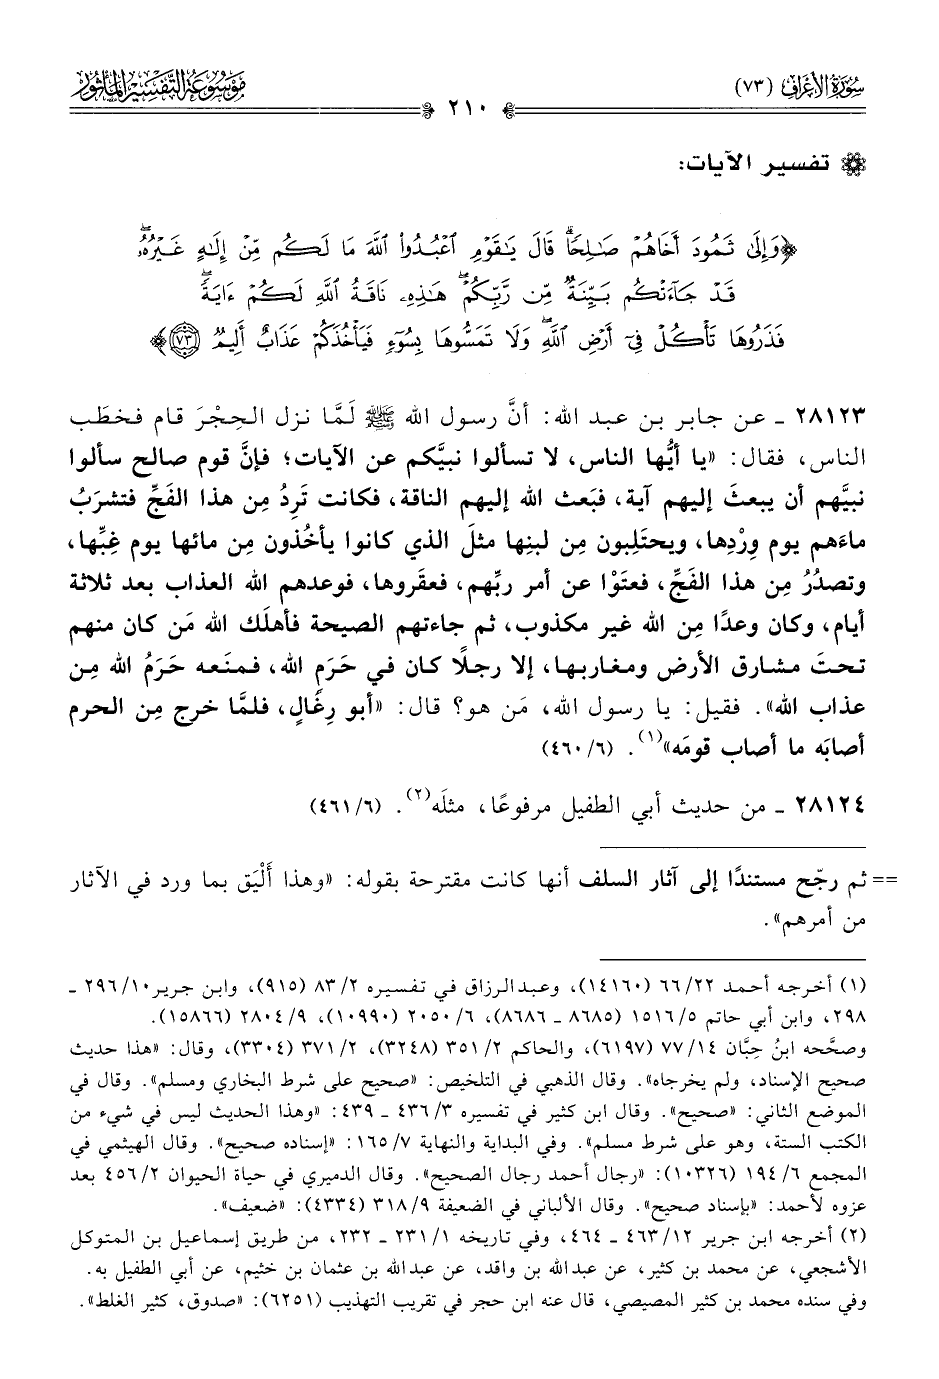 سُورَةُ الأَعْرَافِ (٧٣)
٢١٠
مَوْسُوعَةُ التَّفْسِيرِ المَأْثُورِ
تفسير الآيات:
﴿وَإِلَىٰ ثَمُودَ أَخَاهُمْ صَـٰلِحًاۗ قَالَ يَـٰقَوْمِ ٱعْبُدُوا۟ ٱللَّهَ مَا لَكُم مِّنْ إِلَـٰهٍ غَيْرُهُۥۖ
قَدْ جَآءَتْكُم بَيِّنَةٌ مِّن رَّبِّكُمْۖ هَـٰذِهِۦ نَاقَةُ ٱللَّهِ لَكُمْ ءَايَةًۖ
فَذَرُوهَا تَأْكُلْ فِىٓ أَرْضِ ٱللَّهِۖ وَلَا تَمَسُّوهَا بِسُوٓءٍ فَيَأْخُذَكُمْ عَذَابٌ أَلِيمٌ ٧٣﴾
٢٨١٢٣ ـ عن جابر بن عبد الله: أنَّ رسول الله ﷺ لَمَّا نزل الحِجْرَ قام فخطَب
الناس، فقال: «يا أيُّها الناس، لا تسألوا نبيَّكم عن الآيات؛ فإنَّ قوم صالح سألوا
نبيَّهم أن يبعثَ إليهم آية، فبَعث الله إليهم الناقة، فكانت تَرِدُ مِن هذا الفَجِّ فتشرَبُ
ماءَهم يوم وِرْدِها، ويحتَلِبون مِن لبنِها مثلَ الذي كانوا يأخُذون مِن مائها يوم غِبِّها،
وتصدُرُ مِن هذا الفَجِّ، فعتَوْا عن أمر ربِّهم، فعقَروها، فوعدهم الله العذاب بعد ثلاثة
أيام، وكان وعدًا مِن الله غير مكذوب، ثم جاءتهم الصيحة فأهلَك الله مَن كان منهم
تحتَ مشارق الأرض ومغاربها، إلا رجلًا كان في حَرَمِ الله، فمنَعه حَرَمُ الله مِن
عذاب الله». فقيل: يا رسول الله، مَن هو؟ قال: «أبو رِغَالٍ، فلمَّا خرج مِن الحرم
أصابَه ما أصاب قومَه»(١). (٤٦٠/٦)
٢٨١٢٤ ـ من حديث أبي الطفيل مرفوعًا، مثلَه(٢). (٤٦١/٦)
== ثم رجّح مستندًا إلى آثار السلف أنها كانت مقترحة بقوله: «وهذا أَلْيَق بما ورد في الآثار
من أمرهم».
(١) أخرجه أحمد ٦٦/٢٢ (١٤١٦٠)، وعبدالرزاق في تفسيره ٨٣/٢ (٩١٥)، وابن جرير ٢٩٦/١٠ ـ
٢٩٨، وابن أبي حاتم ١٥١٦/٥ (٨٦٨٥ ـ ٨٦٨٦)، ٢٠٥٠/٦ (١٠٩٩٠)، ٢٨٠٤/٩ (١٥٨٦٦).
وصحَّحه ابنُ حِبَّان ٧٧/١٤ (٦١٩٧)، والحاكم ٣٥١/٢ (٣٢٤٨)، ٣٧١/٢ (٣٣٠٤)، وقال: «هذا حديث
صحيح الإسناد، ولم يخرجاه». وقال الذهبي في التلخيص: «صحيح على شرط البخاري ومسلم». وقال في
الموضع الثاني: «صحيح». وقال ابن كثير في تفسيره ٤٣٦/٣ ـ ٤٣٩: «وهذا الحديث ليس في شيء من
الكتب الستة، وهو على شرط مسلم». وفي البداية والنهاية ١٦٥/٧: «إسناده صحيح». وقال الهيثمي في
المجمع ١٩٤/٦ (١٠٣٢٦): «رجال أحمد رجال الصحيح». وقال الدميري في حياة الحيوان ٤٥٦/٢ بعد
عزوه لأحمد: «بإسناد صحيح». وقال الألباني في الضعيفة ٣١٨/٩ (٤٣٣٤): «ضعيف».
(٢) أخرجه ابن جرير ٤٦٣/١٢ ـ ٤٦٤، وفي تاريخه ٢٣١/١ ـ ٢٣٢، من طريق إسماعيل بن المتوكل
الأشجعي، عن محمد بن كثير، عن عبدالله بن واقد، عن عبدالله بن عثمان بن خثيم، عن أبي الطفيل به.
وفي سنده محمد بن كثير المصيصي، قال عنه ابن حجر في تقريب التهذيب (٦٢٥١): «صدوق، كثير الغلط».